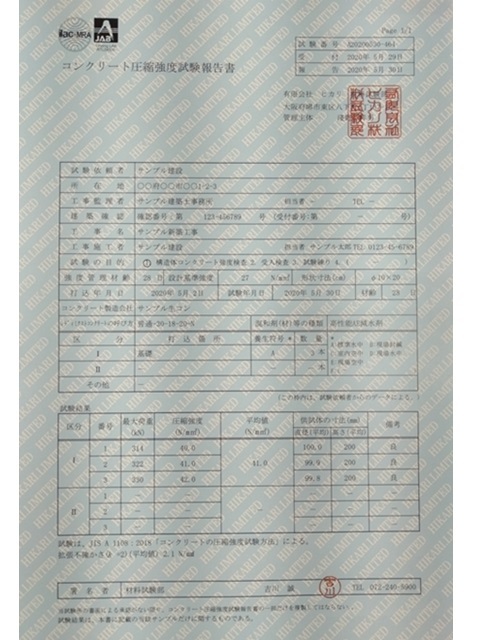 ilac-MRA
JAB
Page 1/1
コンクリート圧縮強度試験報告書
試験番号
受付 2020年 5月 29日
報告 2020年 5月 30日
有限会社 ヒカリ
管理主体
試験依頼者 サンプル建設
所在地 〇〇府〇〇市〇〇1-2-3
工事監理者 サンプル建築士事務所 担当者 － TEL －
建築確認 確認番号：第 123-456789 号 (受付番号：第 － 号)
工事名 サンプル新築工事
工事施工者 サンプル建設 担当者 サンプル太郎 TEL 0123-45-6789
試験の目的 ① 構造体コンクリート強度検査 2. 受入検査 3. 試験練り 4. (
強度管理材齢 28 日 設計基準強度 27 N/mm² 形状寸法(cm) φ10×20
打込年月日 2020年 5月 2日 試験年月日 2020年 5月 30日 材齢 28 日
コンクリート製造会社 サンプル生コン
普通-30-18-20-N 混和剤(材)等の種類 高性能AE減水剤
区分 打込箇所 養生符号* 数量
Ⅰ 基礎 A 3 本
Ⅱ － － － 本
その他 －
(この枠内は、試験依頼者からのデータによる。)
試験結果
区分 番号 最大荷重(kN) 圧縮強度(N/mm²) 平均値(N/mm²) 供試体の寸法(mm) 備考
直径(平均) 高さ(平均)
Ⅰ 1 314 40.0 41.0 100.0 200 良
2 322 41.0 99.9 200 良
3 330 42.0 99.8 200 良
Ⅱ 1 － － － － － －
2 － － － － －
3 － － － － －
試験は、JIS A 1108：2018「コンクリートの圧縮強度試験方法」による。
拡張不確かさU
署名者 材料試験部 古川 誠 古川 TEL 072-240-9900
当試験所の書面による承認のない限り、コンクリート圧縮強度試験報告書の一部だけを複製してはならない。
試験結果は、本書に記載の当該サンプルだけに関するものである。
HIKARI LIMITED